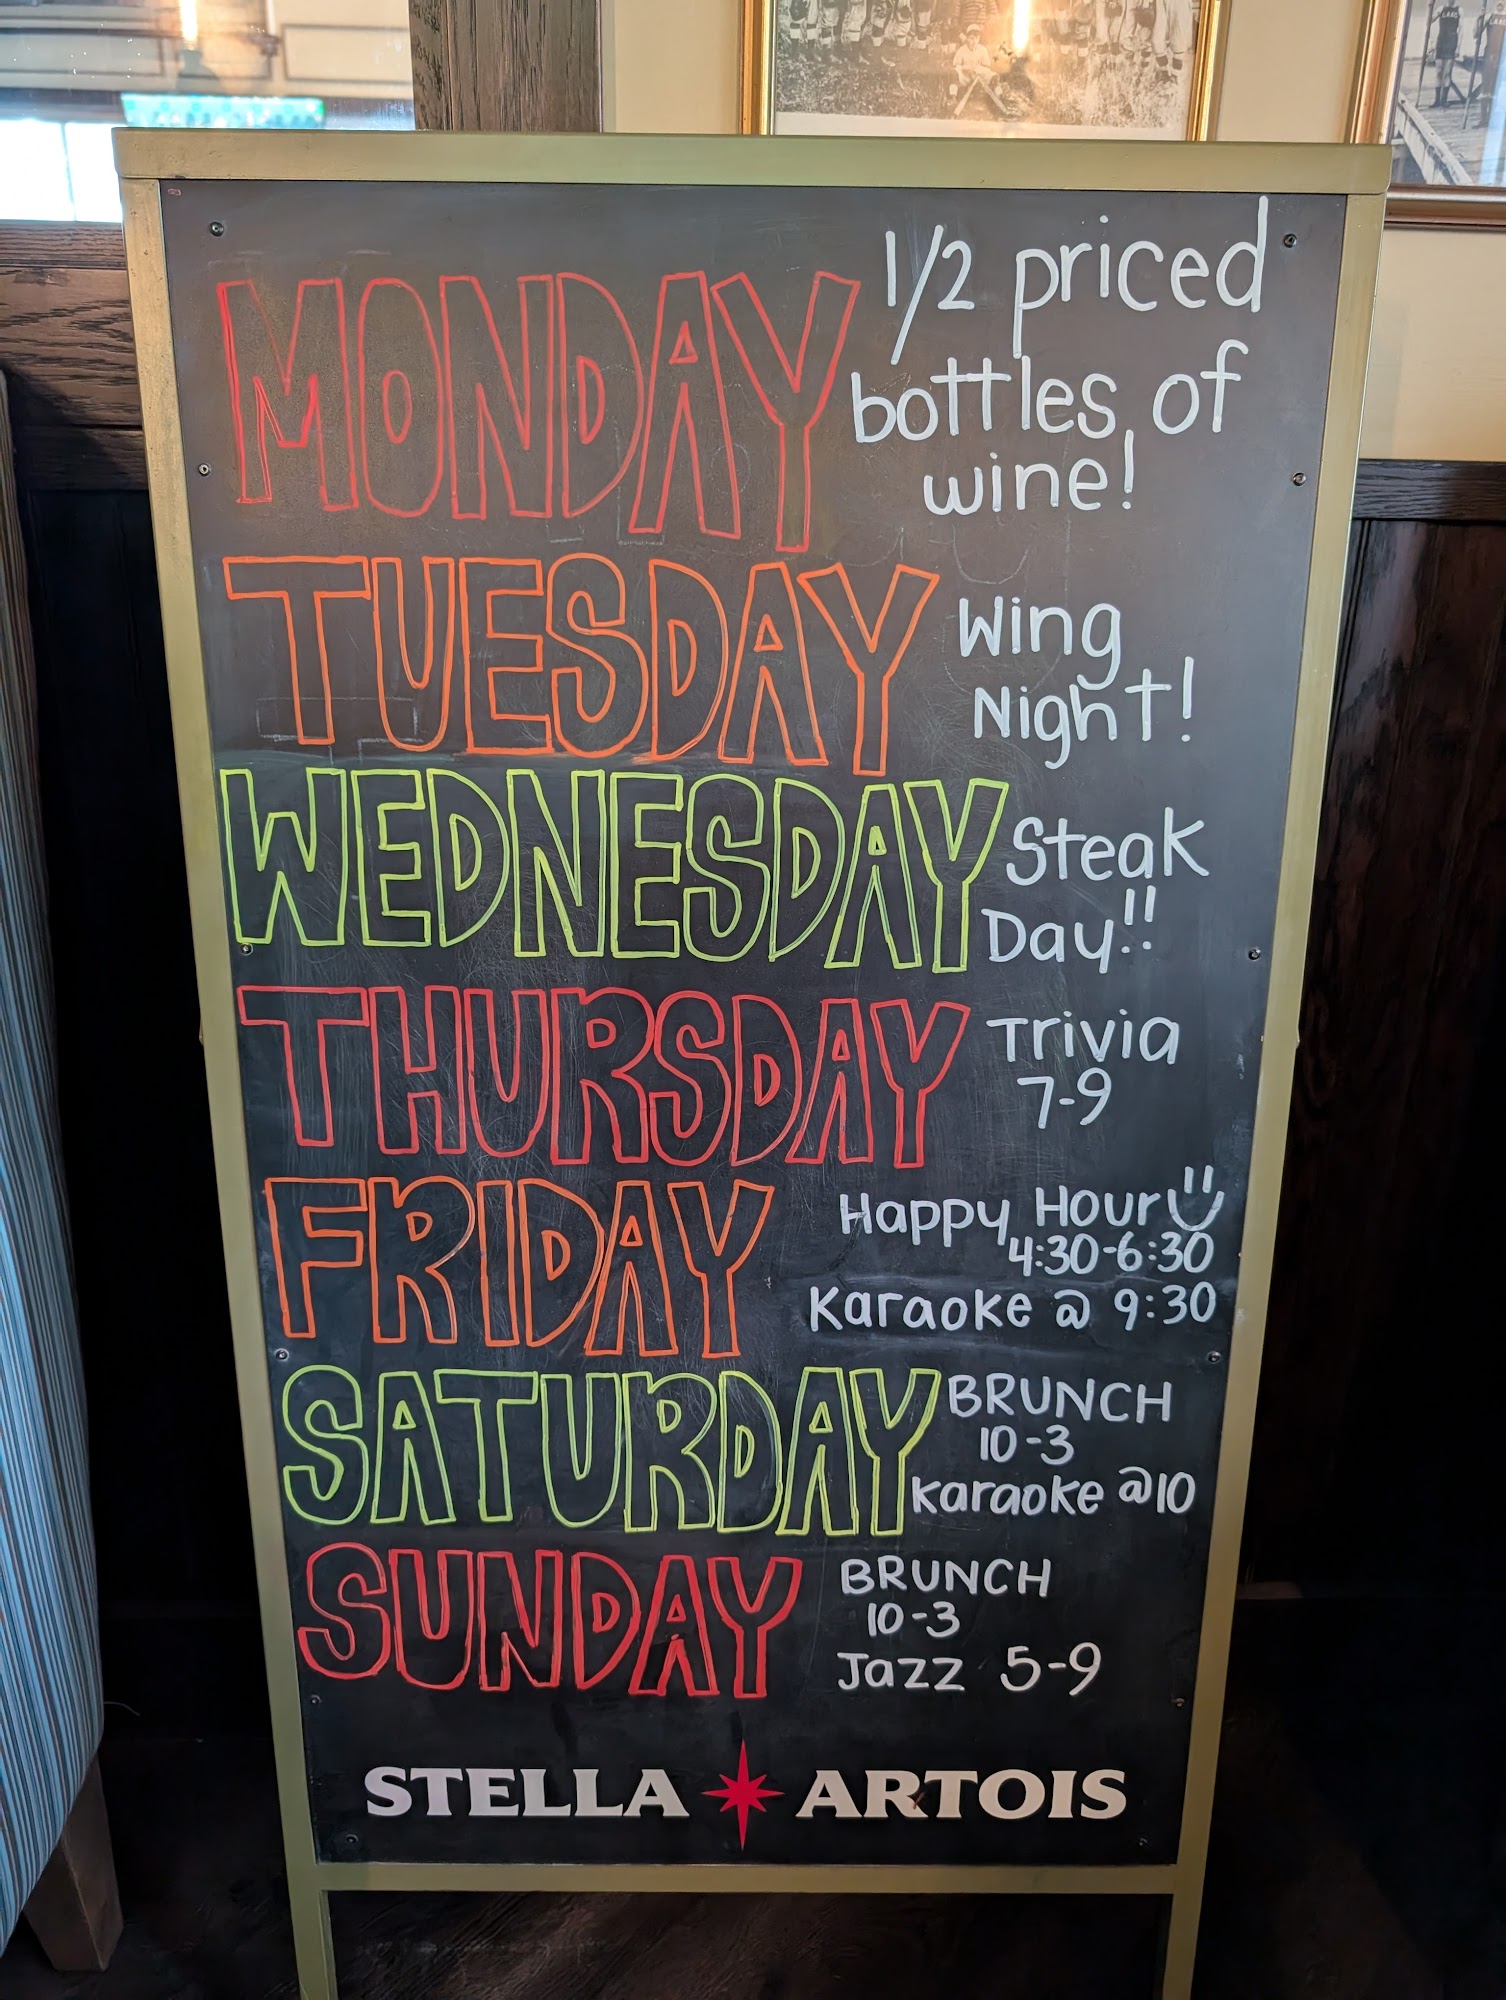 MONDAY
1/2 priced
bottles of
wine!
TUESDAY
Wing
Night!
WEDNESDAY
Steak
Day!!
THURSDAY
Trivia
7-9
FRIDAY
Happy Hour
4:30-6:30
Karaoke @ 9:30
SATURDAY
BRUNCH
10-3
Karaoke @10
SUNDAY
BRUNCH
10-3
Jazz 5-9
STELLA ARTOIS